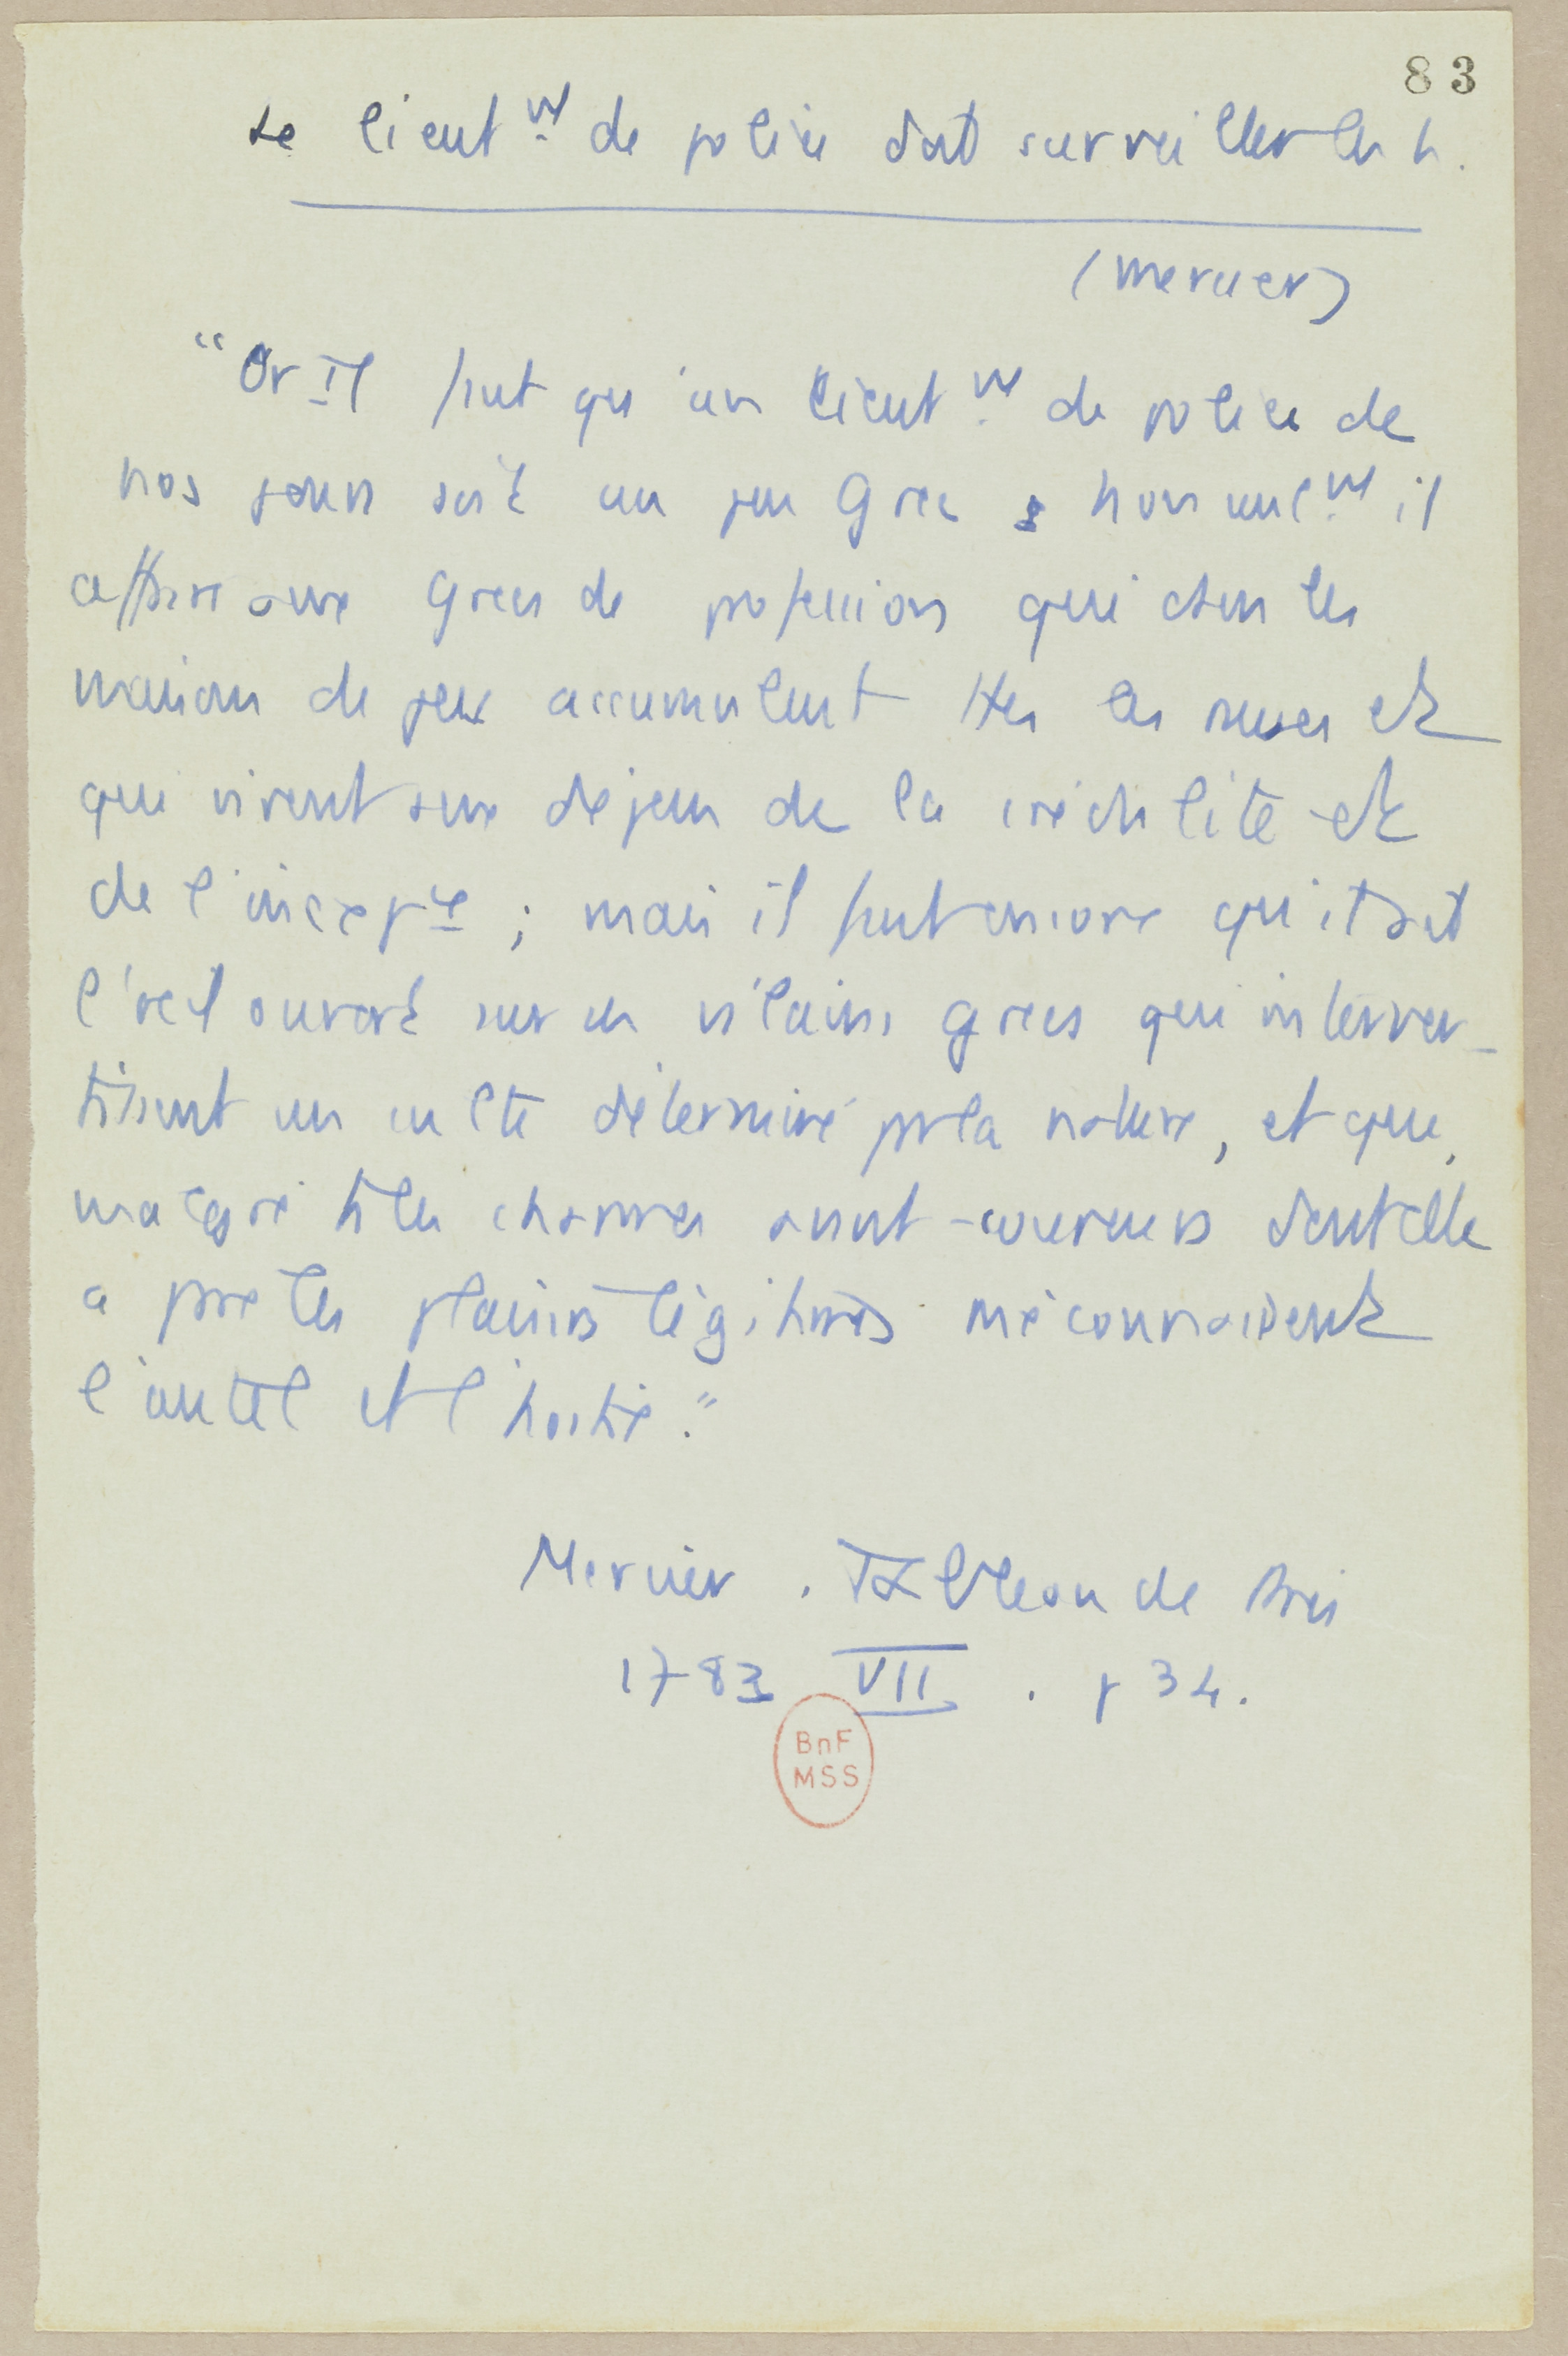 83
Le lieut^nt de police doit surveiller les h.
(Mercier)
"Or il faut qu'un lieut^nt de police de
nos jours soit un peu Grec & non seul^nt il
affaire aux Grecs de profession qui dans les
maisons de jeux accumulent ttes les ruses et
qui vivent aux dépens de la crédulité et
de l'inexp^ce ; mais il faut encore qu'il ait
l'oeil ouvert sur ces vilains grecs qui interver-
tissent un culte déterminé par la nature, et que,
malgré ts les charmes avant-coureurs dont elle
a paré les plaisirs légitimes méconnaissent
l'autel et l'hostie."
Mercier . Tableau de Paris
1783 VII . p 34.
BnF
MSS